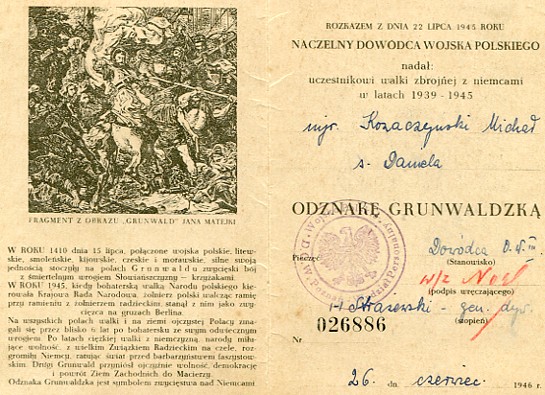 FRAGMENT Z OBRAZU „GRUNWALD" JANA MATEJKI
W ROKU 1410 dnia 15 lipca, połączone wojska polskie, litew-
skie, smoleńskie, kijowskie, czeskie i morawskie, silne swoją
jednością stoczyły na polach Grunwaldu zwycięski bój
z śmiertelnym wrogiem Słowiańszczyzny — krzyżakami.
W ROKU 1945, kiedy bohaterską walką Narodu polskiego kie-
rowała Krajowa Rada Narodowa, żołnierz polski walcząc ramię
przy ramieniu z żołnierzem radzieckim, stanął z nim jako zwy-
cięzca na gruzach Berlina.
Na wszystkich polach walki i na ziemi ojczystej Polacy zmag-
ali się przez blisko 6 lat po bohatersku ze swym odwiecznym
wrogiem. Po latach ciężkiej walki z niemczyzną, narody miłu-
jące wolność, z wielkim Związkiem Radzieckim na czele, roz-
gromiły Niemcy, ratując świat przed barbarzyństwem faszystow-
skim. Drugi Grunwald przyniósł ojczyźnie wolność, demokrację
i powrót Ziem Zachodnich do Macierzy.
Odznaka Grunwaldzka jest symbolem zwycięstwa nad Niemcami
ROZKAZEM Z DNIA 22 LIPCA 1945 ROKU
NACZELNY DOWÓDCA WOJSKA POLSKIEGO
nadał:
uczestnikowi walki zbrojnej z niemcami
w latach 1939 - 1945
mjr. Kozaczyński Michał
s. Daniela
ODZNAKĘ GRUNWALDZKĄ
Dowódca
Pieczęć
(Stanowisko)
w/z
(podpis wręczającego)
Strażewski - gen. dyw.
(stopień)
Nr
026886
26. dn. czerwiec 1946 r.